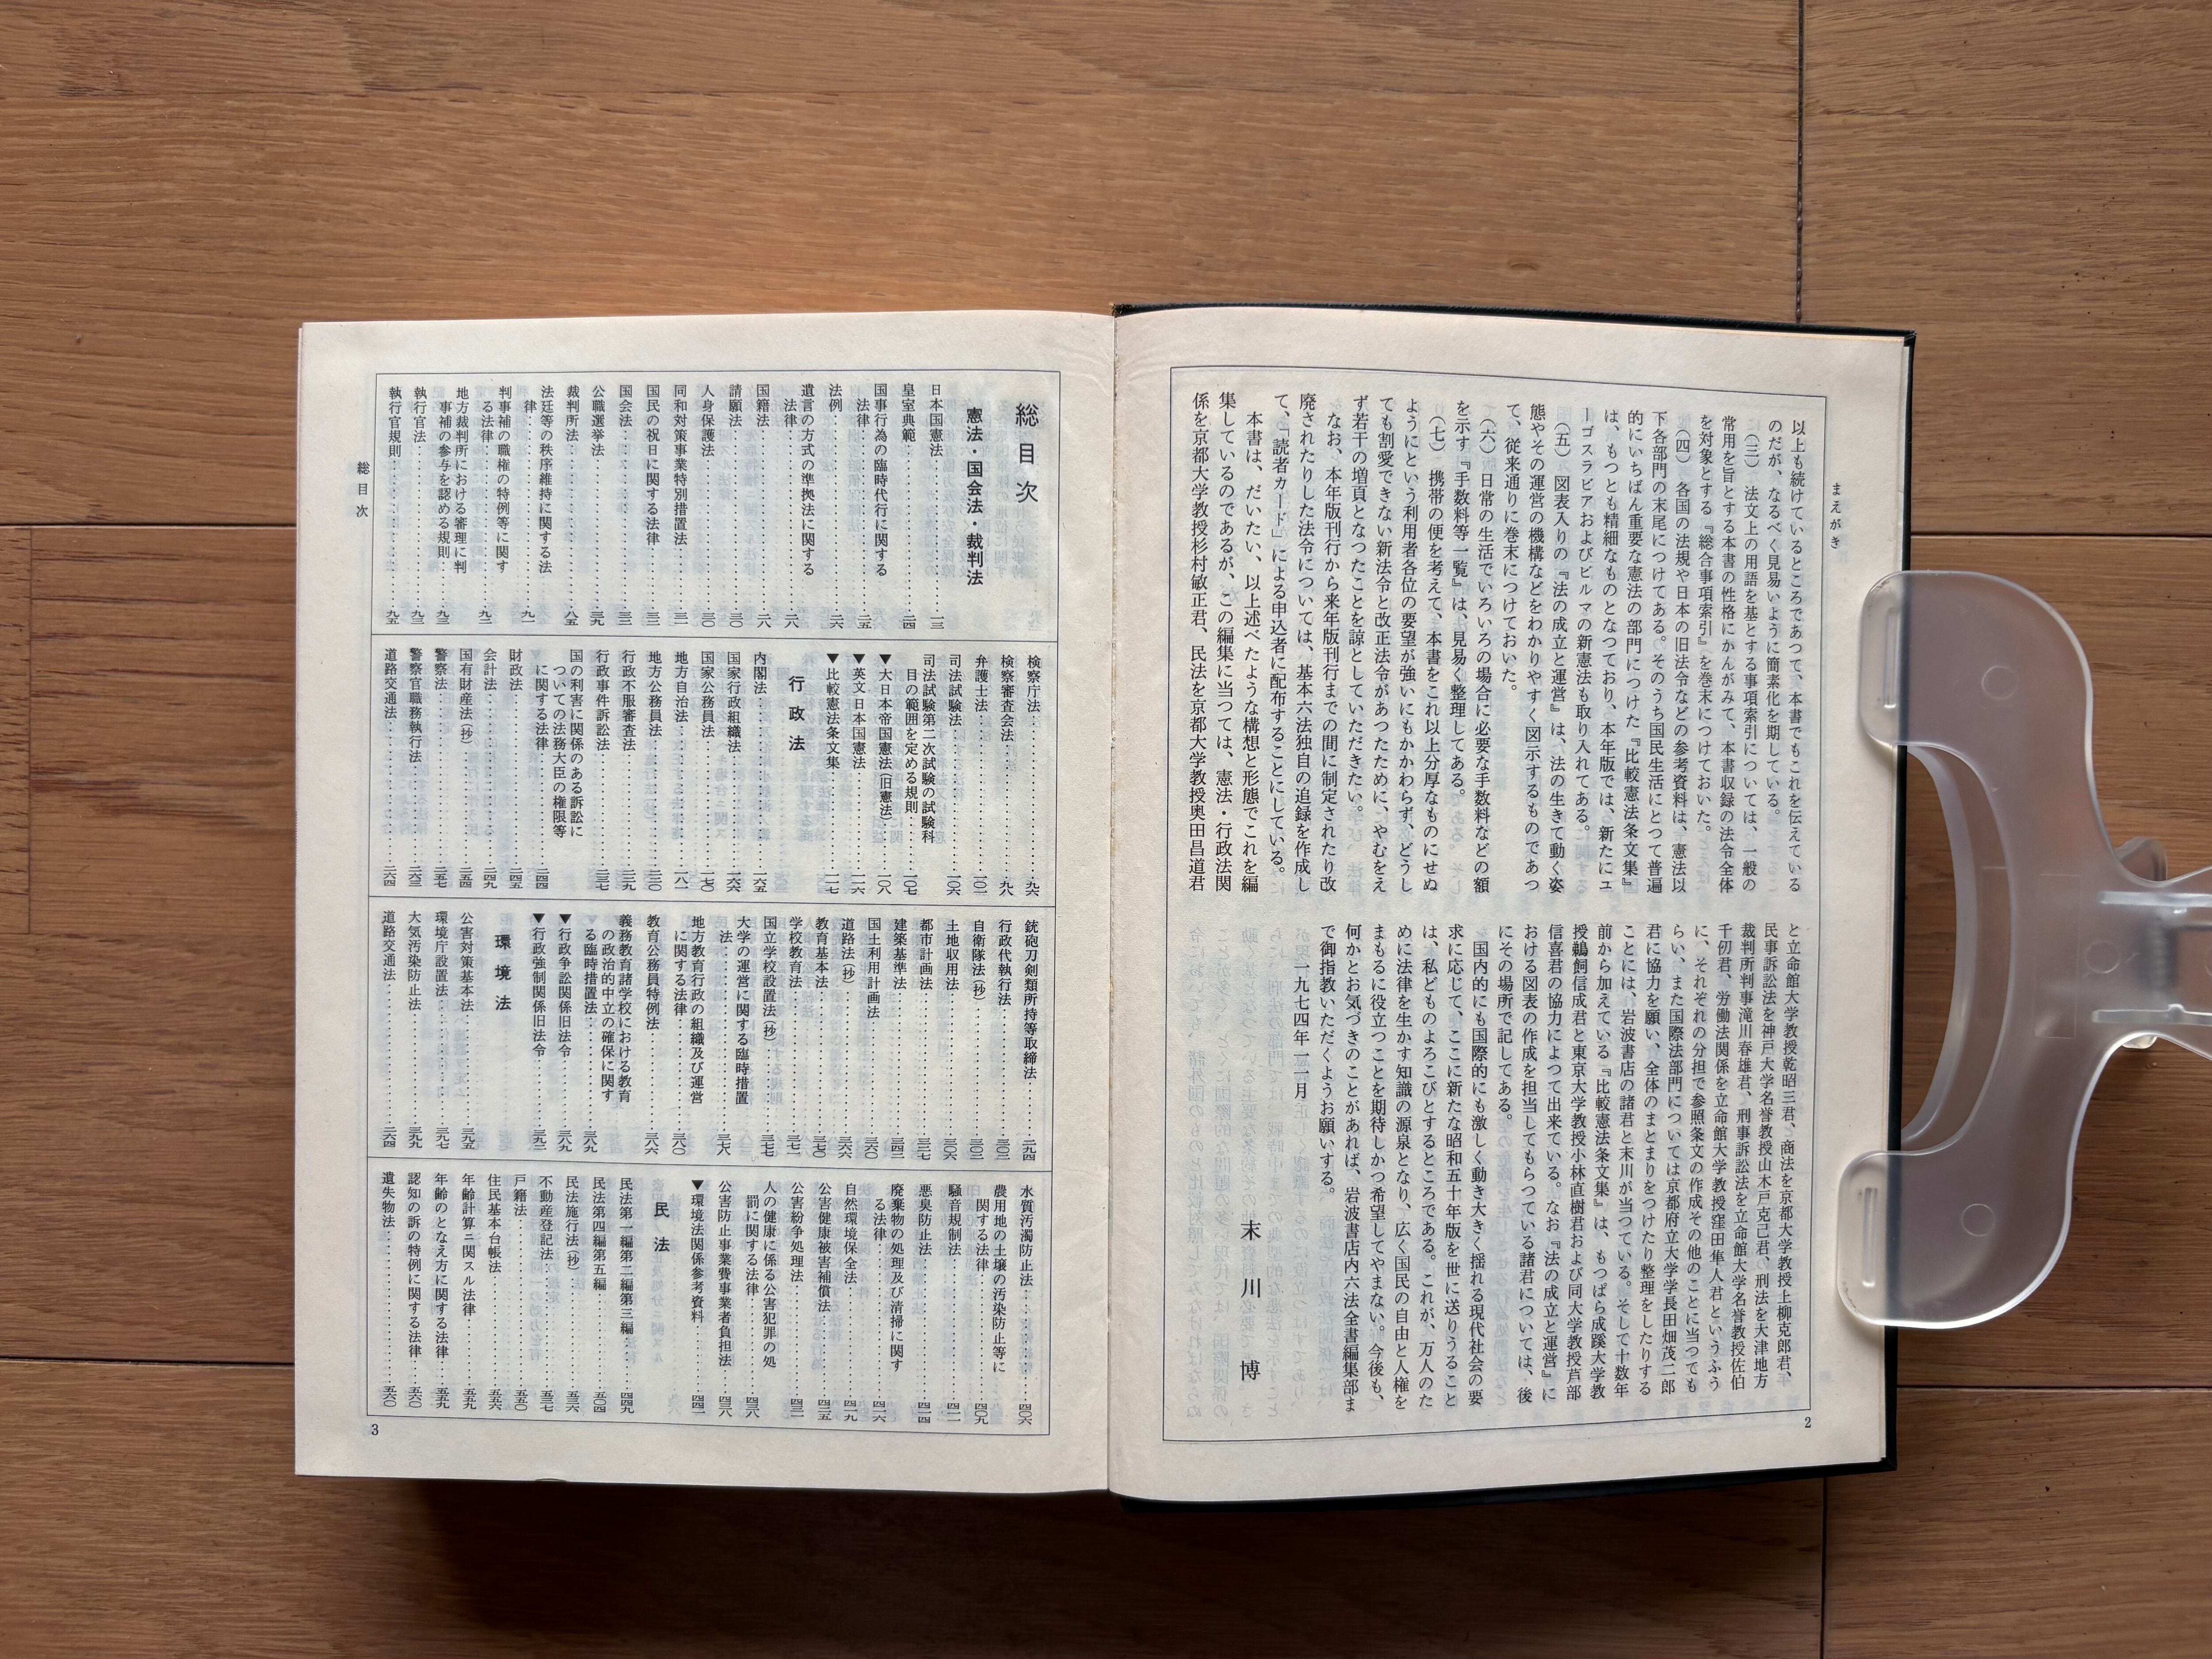 まえがき
以上も続けているところであつて、本書でもこれを伝えている
のだが、なるべく見易いように簡素化を期している。
(三) 法文上の用語を基とする事項索引については、一般の
常用を旨とする本書の性格にかんがみて、本書収録の法令全体
を対象とする『総合事項索引』を巻末につけておいた。
(四) 各国の法規や日本の旧法令などの参考資料は、憲法以
下各部門の末尾につけてある。そのうち国民生活にとつて普遍
的にいちばん重要な憲法の部門につけた『比較憲法条文集』
は、もつとも精細なものとなつており、本年版では、新たにユ
ーゴスラビアおよびビルマの新憲法も取り入れてある。
(五) 図表入りの『法の成立と運営』は、法の生きて動く姿
態やその運営の機構などをわかりやすく図示するものであつ
て、従来通りに巻末につけておいた。
(六) 日常の生活でいろいろの場合に必要な手数料などの額
を示す『手数料等一覧』は、見易く整理してある。
(七) 携帯の便を考えて、本書をこれ以上分厚なものにせぬ
ようにという利用者各位の要望が強いにもかかわらず、どうし
ても割愛できない新法令と改正法令があつたために、やむをえ
ず若干の増頁となつたことを諒としていただきたい。
なお、本年版刊行から来年版刊行までの間に制定されたり改
廃されたりした法令については、基本六法独自の追録を作成し
て、「読者カード」による申込者に配布することにしている。
本書は、だいたい、以上述べたような構想と形態でこれを編
集しているのであるが、この編集に当つては、憲法・行政法関
係を京都大学教授杉村敏正君、民法を京都大学教授奥田昌道君
と立命館大学教授乾昭三君、商法を京都大学教授上柳克郎君、
民事訴訟法を神戸大学名誉教授山木戸克己君、刑法を大津地方
裁判所判事滝川春雄君、刑事訴訟法を立命館大学名誉教授佐伯
千仭君、労働法関係を立命館大学教授窪田隼人君というふう
に、それぞれの分担で参照条文の作成その他のことに当つても
らい、また国際法部門については京都府立大学学長田畑茂二郎
君に協力を願い、全体のまとまりをつけたり整理をしたりする
ことには、岩波書店の諸君と末川が当つている。そして十数年
前から加えている『比較憲法条文集』は、もつぱら成蹊大学教
授鵜飼信成君と東京大学教授小林直樹君および同大学教授芦部
信喜君の協力によつて出来ている。なお『法の成立と運営』に
おける図表の作成を担当してもらつている諸君については、後
にその場所で記してある。
国内的にも国際的にも激しく動き大きく揺れる現代社会の要
求に応じて、ここに新たな昭和五十年版を世に送りうること
は、私どものよろこびとするところである。これが、万人のた
めに法律を生かす知識の源泉となり、広く国民の自由と人権を
まもるに役立つことを期待しかつ希望してやまない。今後も、
何かとお気づきのことがあれば、岩波書店内六法全書編集部ま
で御指教いただくようお願いする。
一九七四年一一月
末川 博
2
総目次
憲法・国会法・裁判法
日本国憲法……一三
皇室典範……二四
国事行為の臨時代行に関する
法律……二五
法例……二六
遺言の方式の準拠法に関する
法律……二八
国籍法……二八
請願法……三〇
人身保護法……三〇
同和対策事業特別措置法……三一
国民の祝日に関する法律……三三
国会法……三三
公職選挙法……三九
裁判所法……八五
法廷等の秩序維持に関する法
律……九一
判事補の職権の特例等に関す
る法律……九二
地方裁判所における審理に判
事補の参与を認める規則……九三
執行官法……九三
執行官規則……九五
検察庁法……九六
検察審査会法……九八
弁護士法……一〇二
司法試験法……一〇六
司法試験第二次試験の試験科
目の範囲を定める規則……一〇七
▼大日本帝国憲法(旧憲法)……一〇八
▼英文日本国憲法……一一六
▼比較憲法条文集……一一七
行政法
内閣法……一六五
国家行政組織法……一六六
国家公務員法……一七〇
地方自治法……一八二
地方公務員法……二三〇
行政不服審査法……二三九
行政事件訴訟法……二三七
国の利害に関係のある訴訟に
ついての法務大臣の権限等
に関する法律……二四四
財政法……二四五
会計法……二四九
国有財産法(抄)……二五四
警察法……二五七
警察官職務執行法……二六三
道路交通法……二六四
銃砲刀剣類所持等取締法……二九四
行政代執行法……三〇二
自衛隊法(抄)……三〇二
土地収用法……三〇六
都市計画法……三二七
建築基準法……三四二
国土利用計画法……三六〇
道路法(抄)……三六六
教育基本法……三七〇
学校教育法……三七一
国立学校設置法(抄)……三七七
大学の運営に関する臨時措置
法……三七八
地方教育行政の組織及び運営
に関する法律……三八〇
教育公務員特例法……三八六
義務教育諸学校における教育
の政治的中立の確保に関す
る臨時措置法……三八九
▼行政争訟関係旧法令……三八九
▼行政強制関係旧法令……三九二
環境法
公害対策基本法……三九五
環境庁設置法……三九七
大気汚染防止法……三九九
道路交通法……二六四
水質汚濁防止法……四〇六
農用地の土壌の汚染防止等に
関する法律……四〇九
騒音規制法……四一一
悪臭防止法……四一四
廃棄物の処理及び清掃に関す
る法律……四一六
自然環境保全法……四一九
公害健康被害補償法……四二五
公害紛争処理法……四三二
人の健康に係る公害犯罪の処
罰に関する法律……四三八
公害防止事業費事業者負担法……四三八
▼環境法関係参考資料……四四一
民法
民法第一編第二編第三編……四四九
民法第四編第五編……五〇四
民法施行法(抄)……五三六
不動産登記法……五三七
戸籍法……五五〇
住民基本台帳法……五五六
年齢計算ニ関スル法律……五五九
年齢のとなえ方に関する法律……五五九
認知の訴の特例に関する法律……五六〇
遺失物法……五六〇
総目次
3